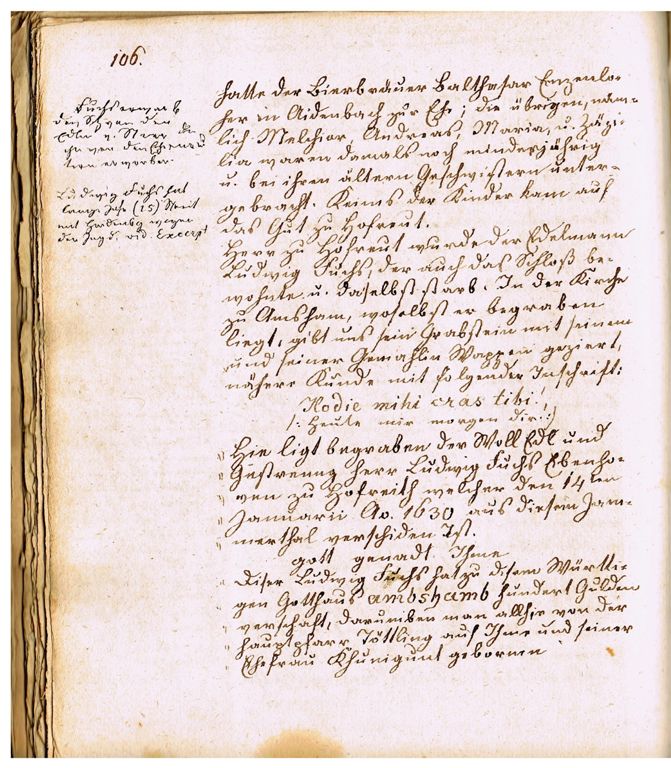 106.
Fuchs erwarb
den Sitz von den
Edln v.
von den
tern erworben.
Ludwig Fuchs hat
(15) Streit
mit wegen
der Jagd. vid. Excerpt
hatte der Bierbräuer Balthasar Enzenlo-
her in Aidenbach zur Ehe; die übrigen, näm-
lich Melchior, Andreas, Maria, u. Zäzi-
lia waren damals noch minderjährig
u. bei ihren ältern Geschwistern unter-
gebracht. Keins der Kinder kam auf
das Gut zu Hofreut.
Herr zu Hofreut wurde der Edelmann
Ludwig Fuchs, der auch das Schloß be-
wohnte u. daselbst starb. In der Kirche
zu Amsham, woselbst er begraben
liegt, gibt uns sein Grabstein mit seinem
und seiner Gemahlin Wappen geziert,
nähere Kunde mit folgender Inschrift:
Hodie mihi cras tibi!
/: Heute mir morgen dir! :/
„ Hie ligt begraben der Woll Edl und
„ Gestreng Herr Ludwig Fuchs Ebenho-
„ ven zu Hofreith welcher den 14ten
„ Januarii Ao. 1630 aus diesem Jam-
„ merthal verschiden Ist.
gott genadt Ihme
„ Diser Ludwig Fuchs hat zu disem Würti-
„ gen Gotthaus ambshamb hundert Gulden
„ verschaft, darumben man allhie von der
„ hauptpharr Töttling auf Ihme und seiner
„ Ehefrau Khunigunt gebornen